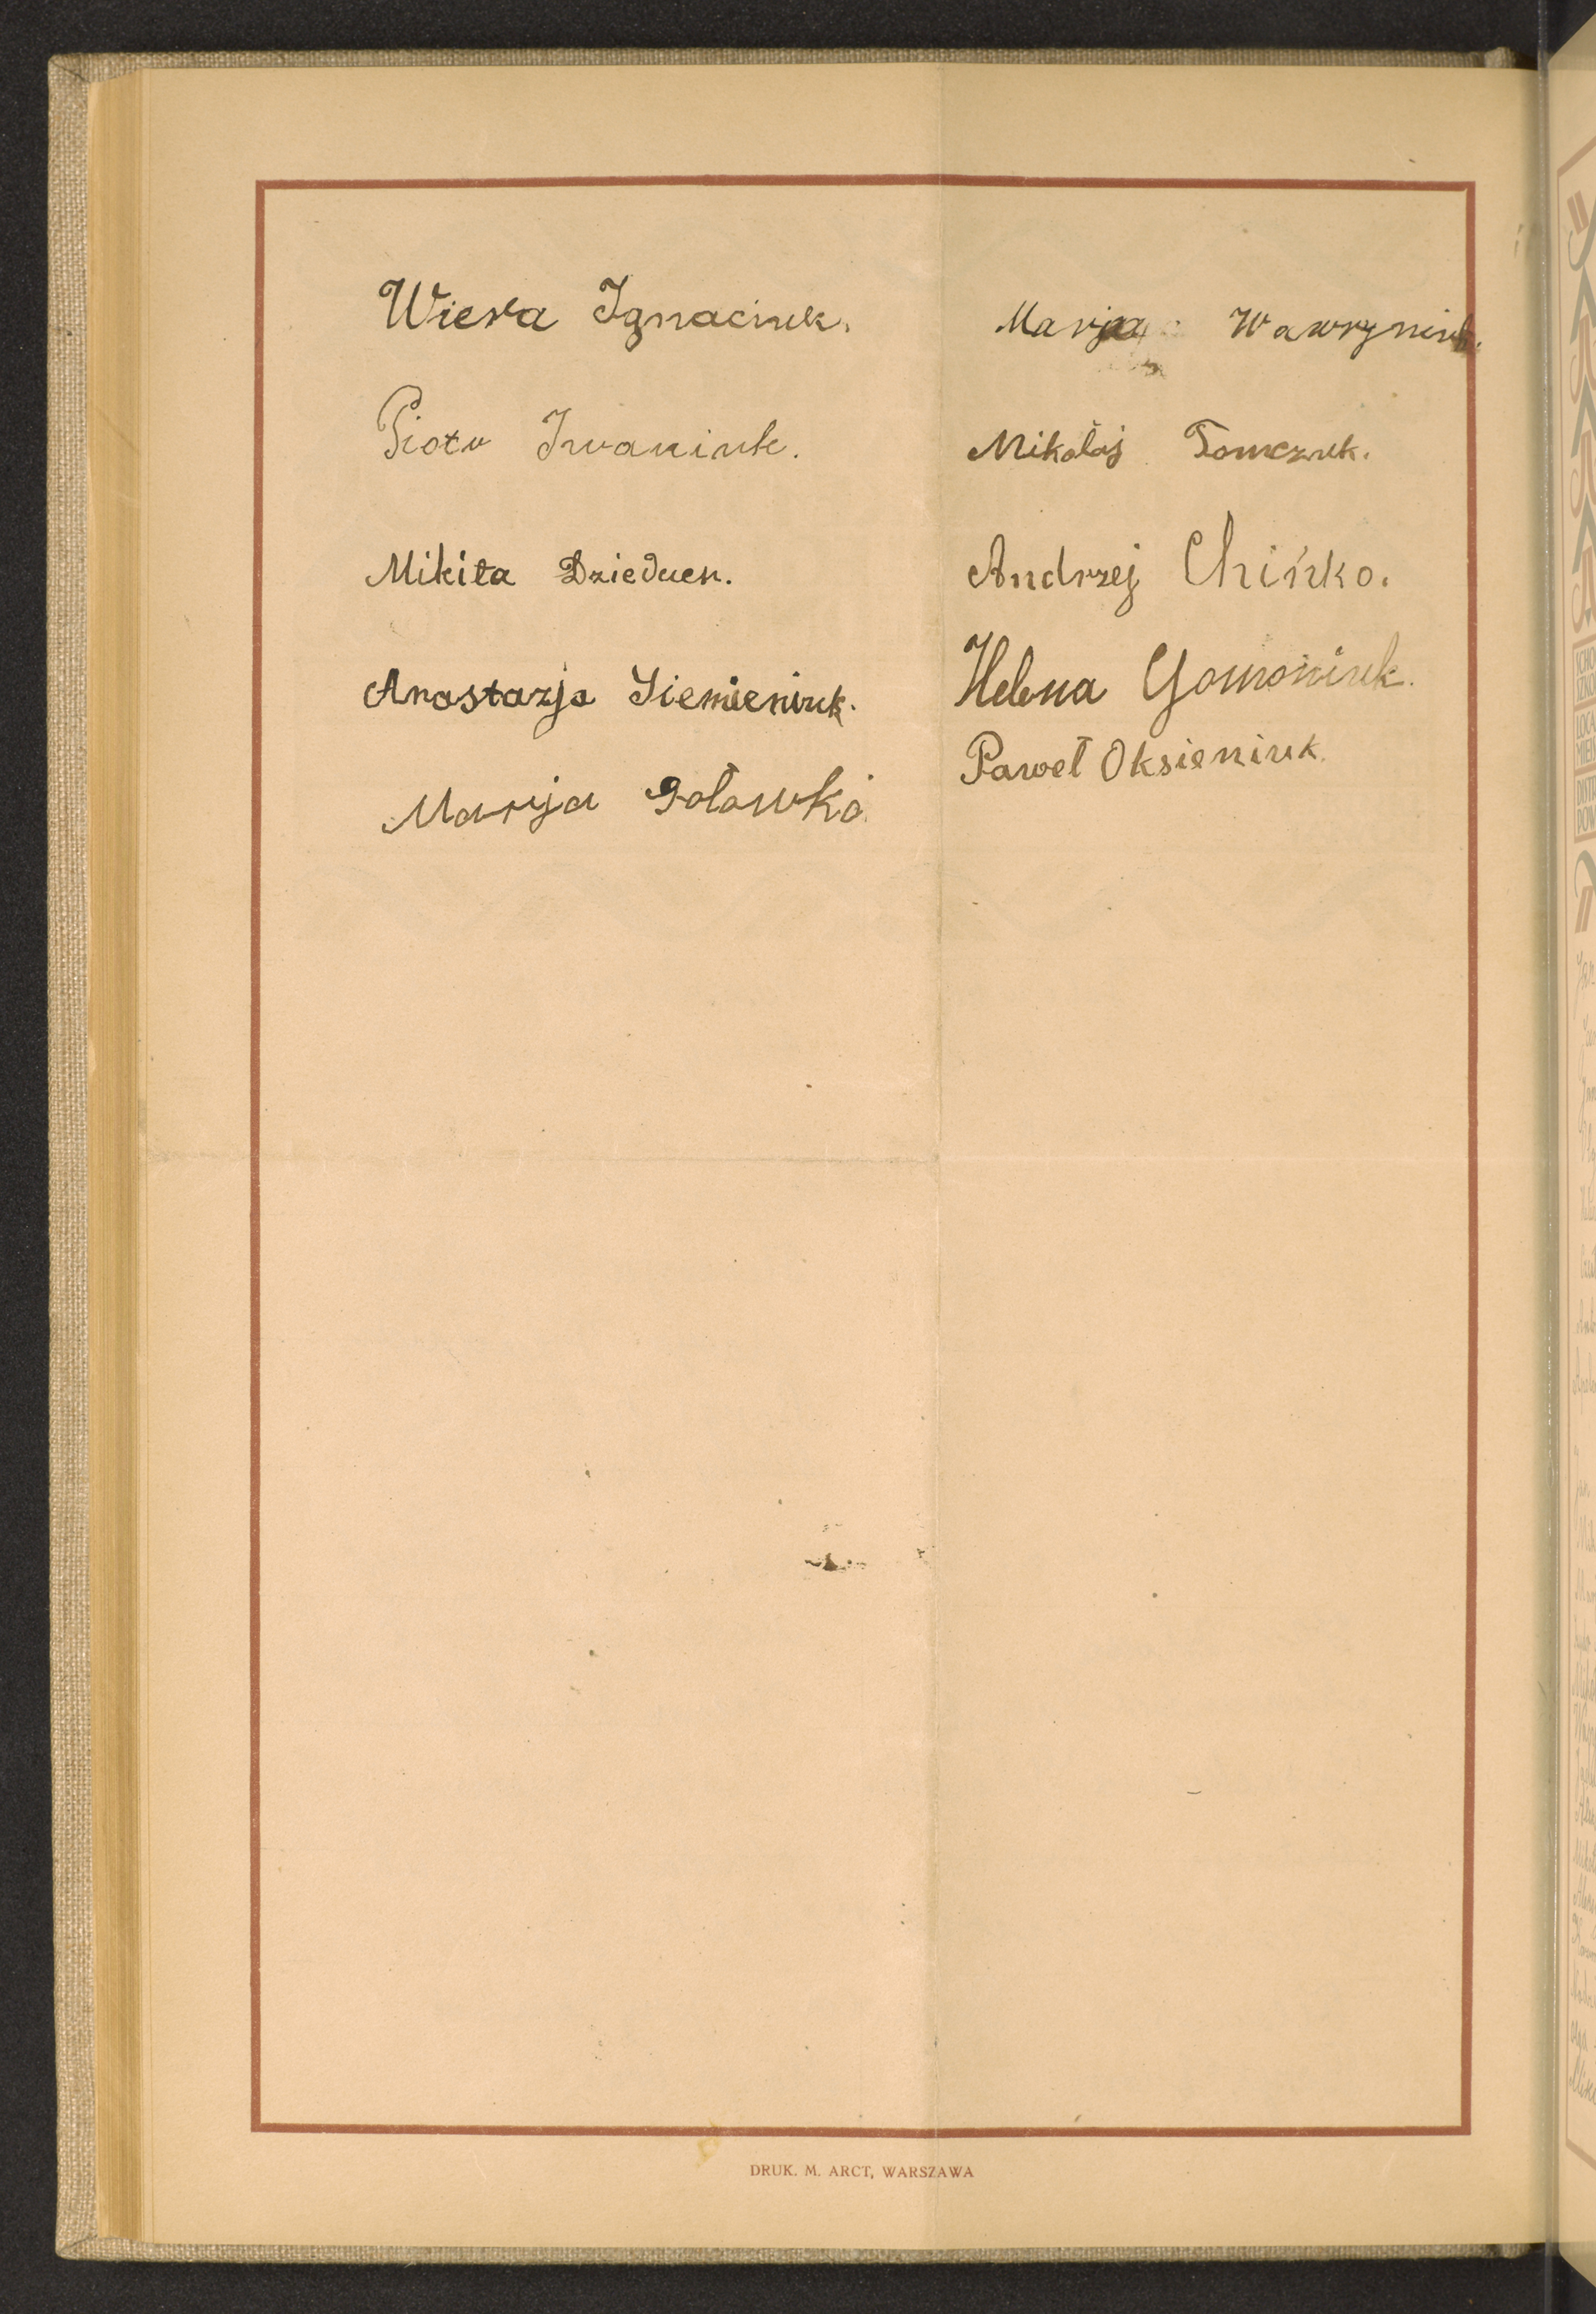 Wiera Ignaciuk.
Piotr Iwaniuk.
Mikita Dzieduen.
Anastazja Siemieniuk.
Marja Gołowko.
Marja Wawryniuk.
Mikołaj Tomczuk.
Andrzej Chińko.
Helena Gomoniuk.
Paweł Oksieniuk.
DRUK. M. ARCT, WARSZAWA